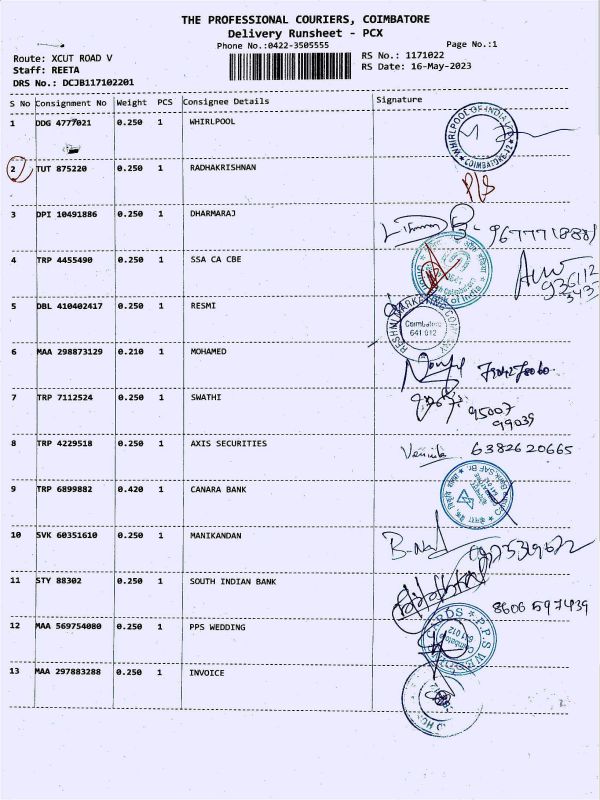 THE PROFESSIONAL COURIERS, COIMBATORE
Delivery Runsheet - PCX
Phone No.:0422-3505555
Page No.:1
Route: XCUT ROAD V
RS No.: 1171022
Staff: REETA
RS Date: 16-May-2023
DRS No.: DCJB117102201
S No Consignment No Weight PCS Consignee Details Signature
1 DDG 4777021 0.250 1 WHIRLPOOL
WHIRLPOOL OF INDIA
2 TUT 875220 0.250 1 RADHAKRISHNAN
P/S
3 DPI 10491886 0.250 1 DHARMARAJ
4 TRP 4455490 0.250 1 SSA CA CBE
5 DBL 410402417 0.250 1 RESMI
RESHNI MARKETING COMPANY
Coimbatore
641 012
6 MAA 298873129 0.210 1 MOHAMED
7 TRP 7112524 0.250 1 SWATHI
95007
99039
8 TRP 4229518 0.250 1 AXIS SECURITIES
6382620665
9 TRP 6899882 0.420 1 CANARA BANK
10 SVK 60351610 0.250 1 MANIKANDAN
11 STY 88302 0.250 1 SOUTH INDIAN BANK
8606597439
12 MAA 569754080 0.250 1 PPS WEDDING
13 MAA 297883288 0.250 1 INVOICE